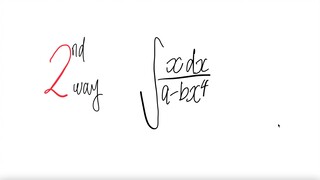 2nd way
∫ x dx / a-bx⁴